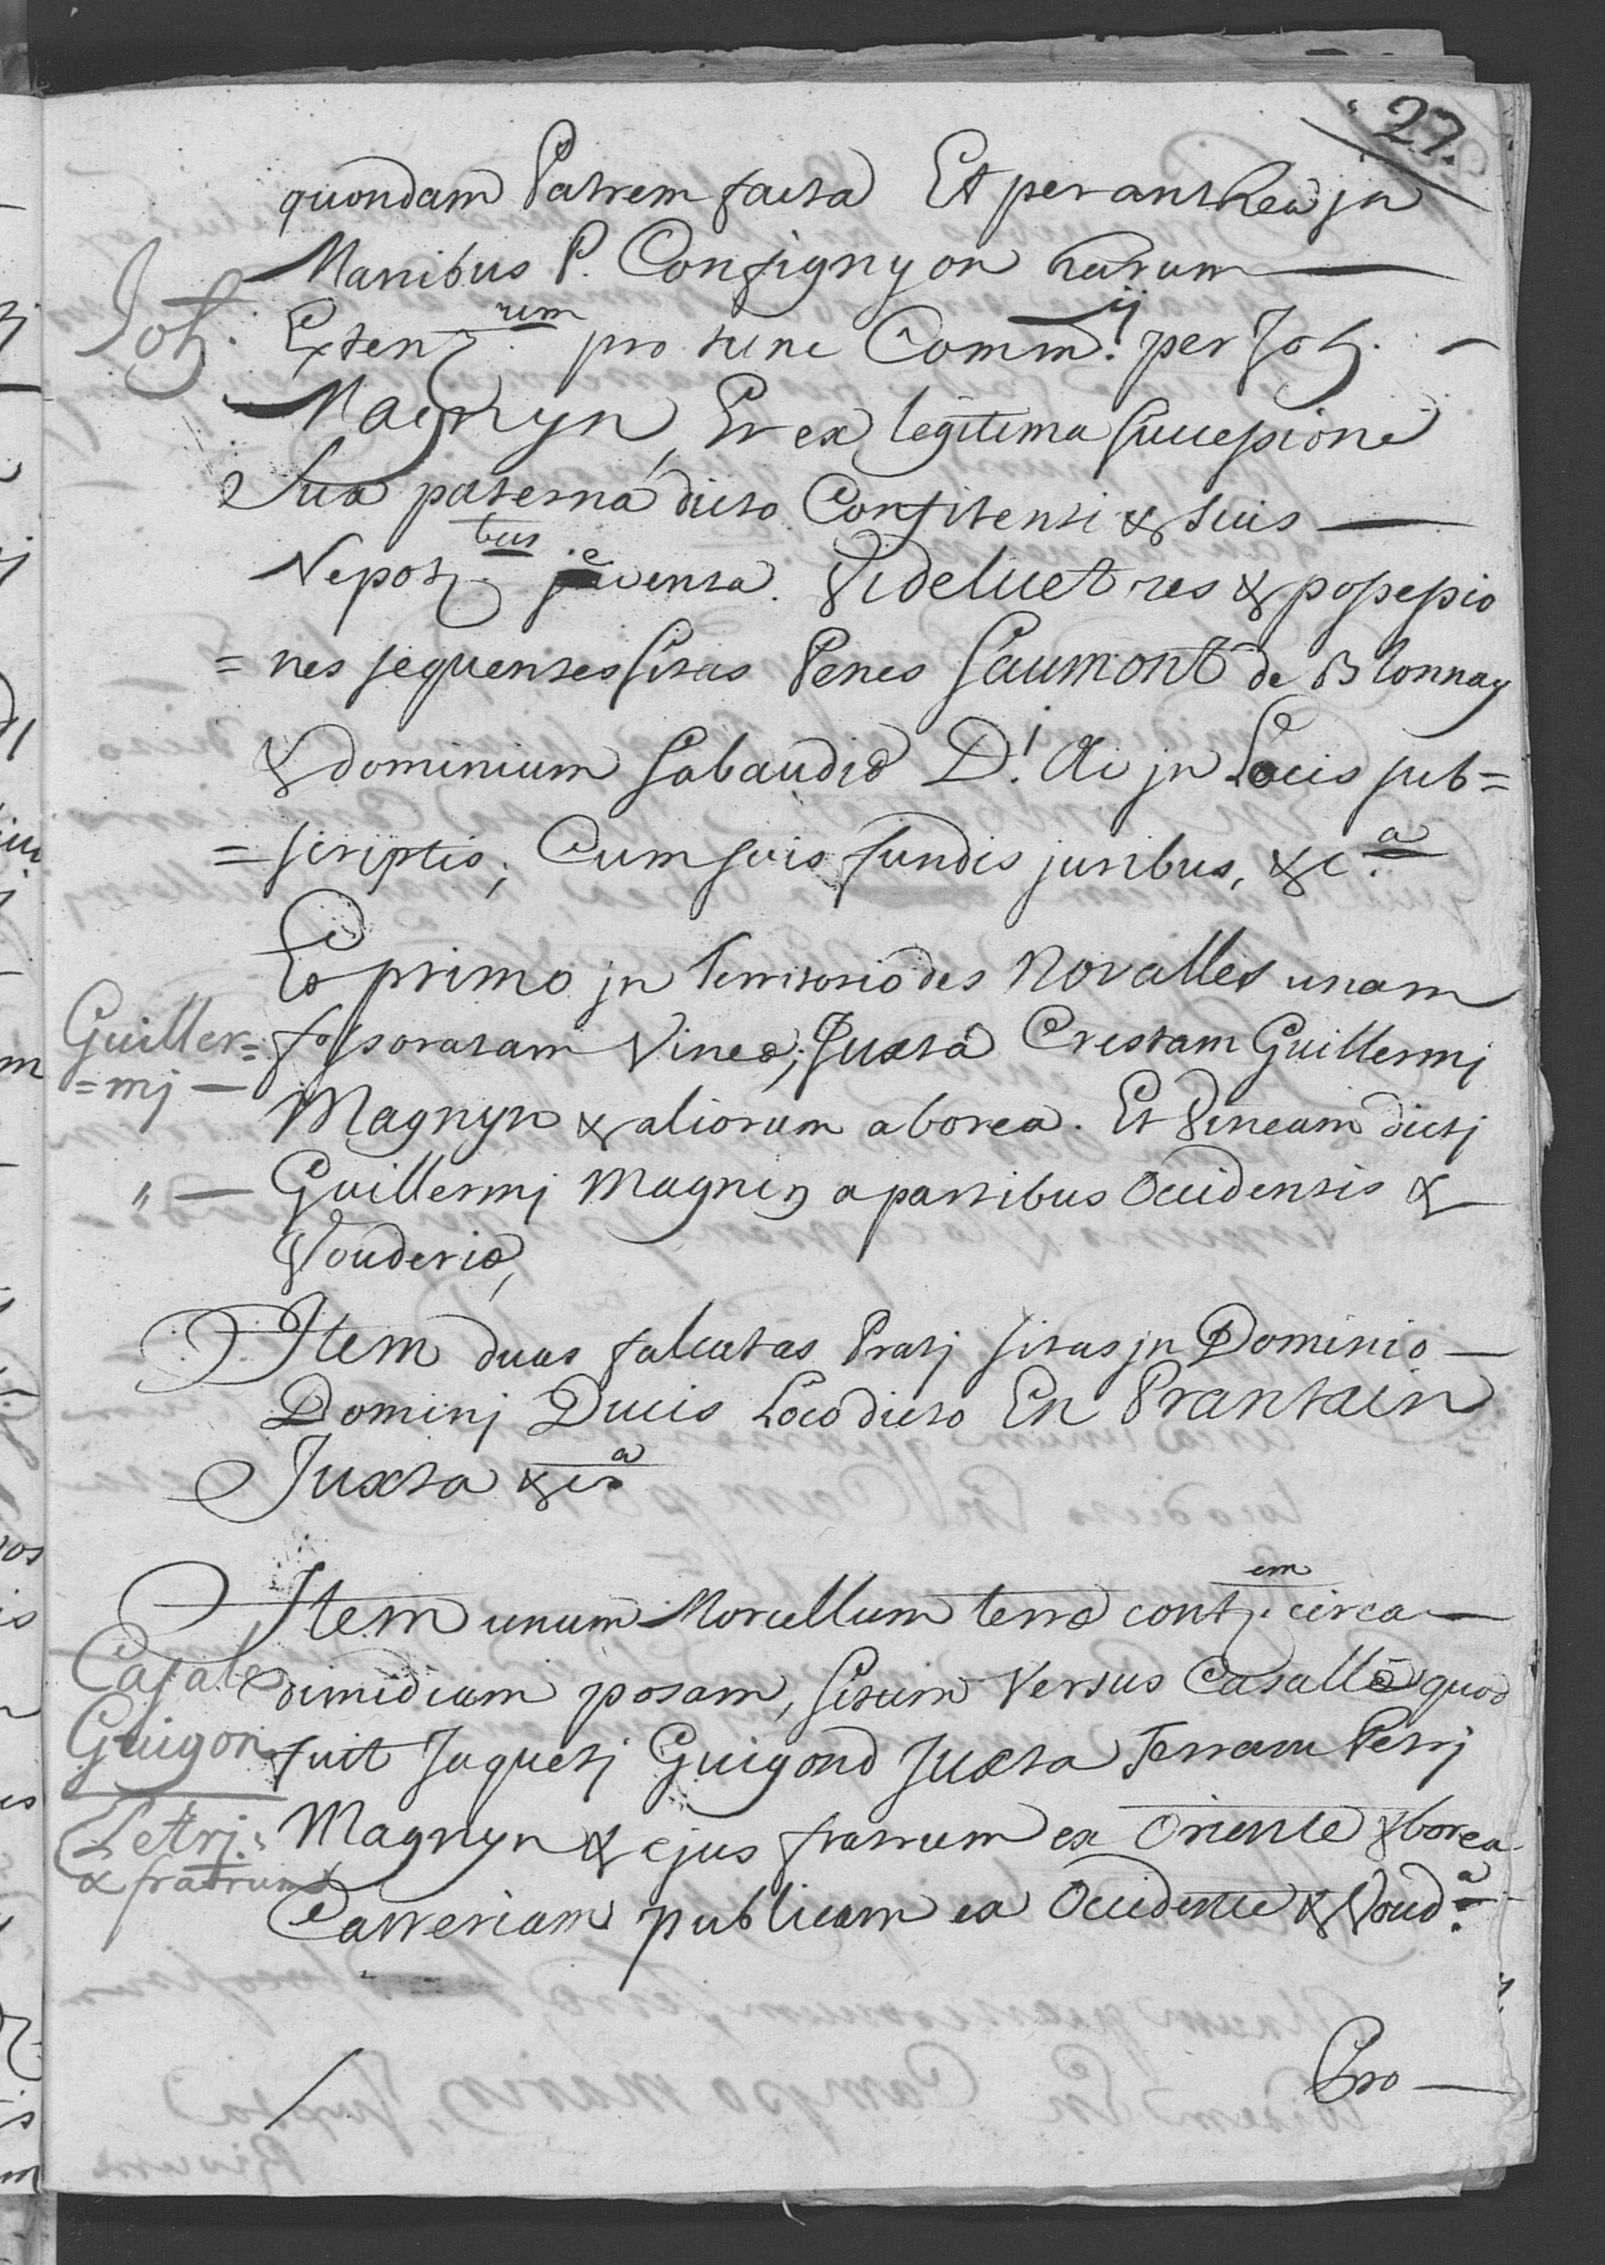 27.
quondam Patrem facta Et per anthea jn
Manibus P. Consignyon harum
Joh. Extenz.rum pro tunc Comm.ij per Joh.
Magnyn, Et ex legitima successione
Sua paterna dicto Confitenti & suis
Nepotz.bus jeventa. Videlicet res & possessio
= nes sequentes sitas Penes Saumont de Blonnay
& dominium Sabaudiæ D.i Ai jn Locis sub=
= scriptis, Cum suis fundis juribus, &c.a
Et primo jn Territorio des Novalles unam
Guiller= fossoratam Vineæ, Juxta Crestam Guillermj
= mj Magnyn & aliorum a borea. Et Vineam dictj
" Guillermj Magnin a partibus Occidentis &
Vouderiæ,
Item duas falcatas Pratj sitas jn Dominio
Dominj Ducis Loco dicto En Prantain
Juxta &c.a
Item unum Morcellum terræ contz.em circa
Casale dimidiam posam, situm Versus Casalle quod
Guigon fuit Jaquetj Guigond Juxta Terram Petrj
Petrj. Magnyn & ejus fratrum ex Oriente & borea
& fratrum Carreriam publicam ex Occidente & Voud.a
Pro